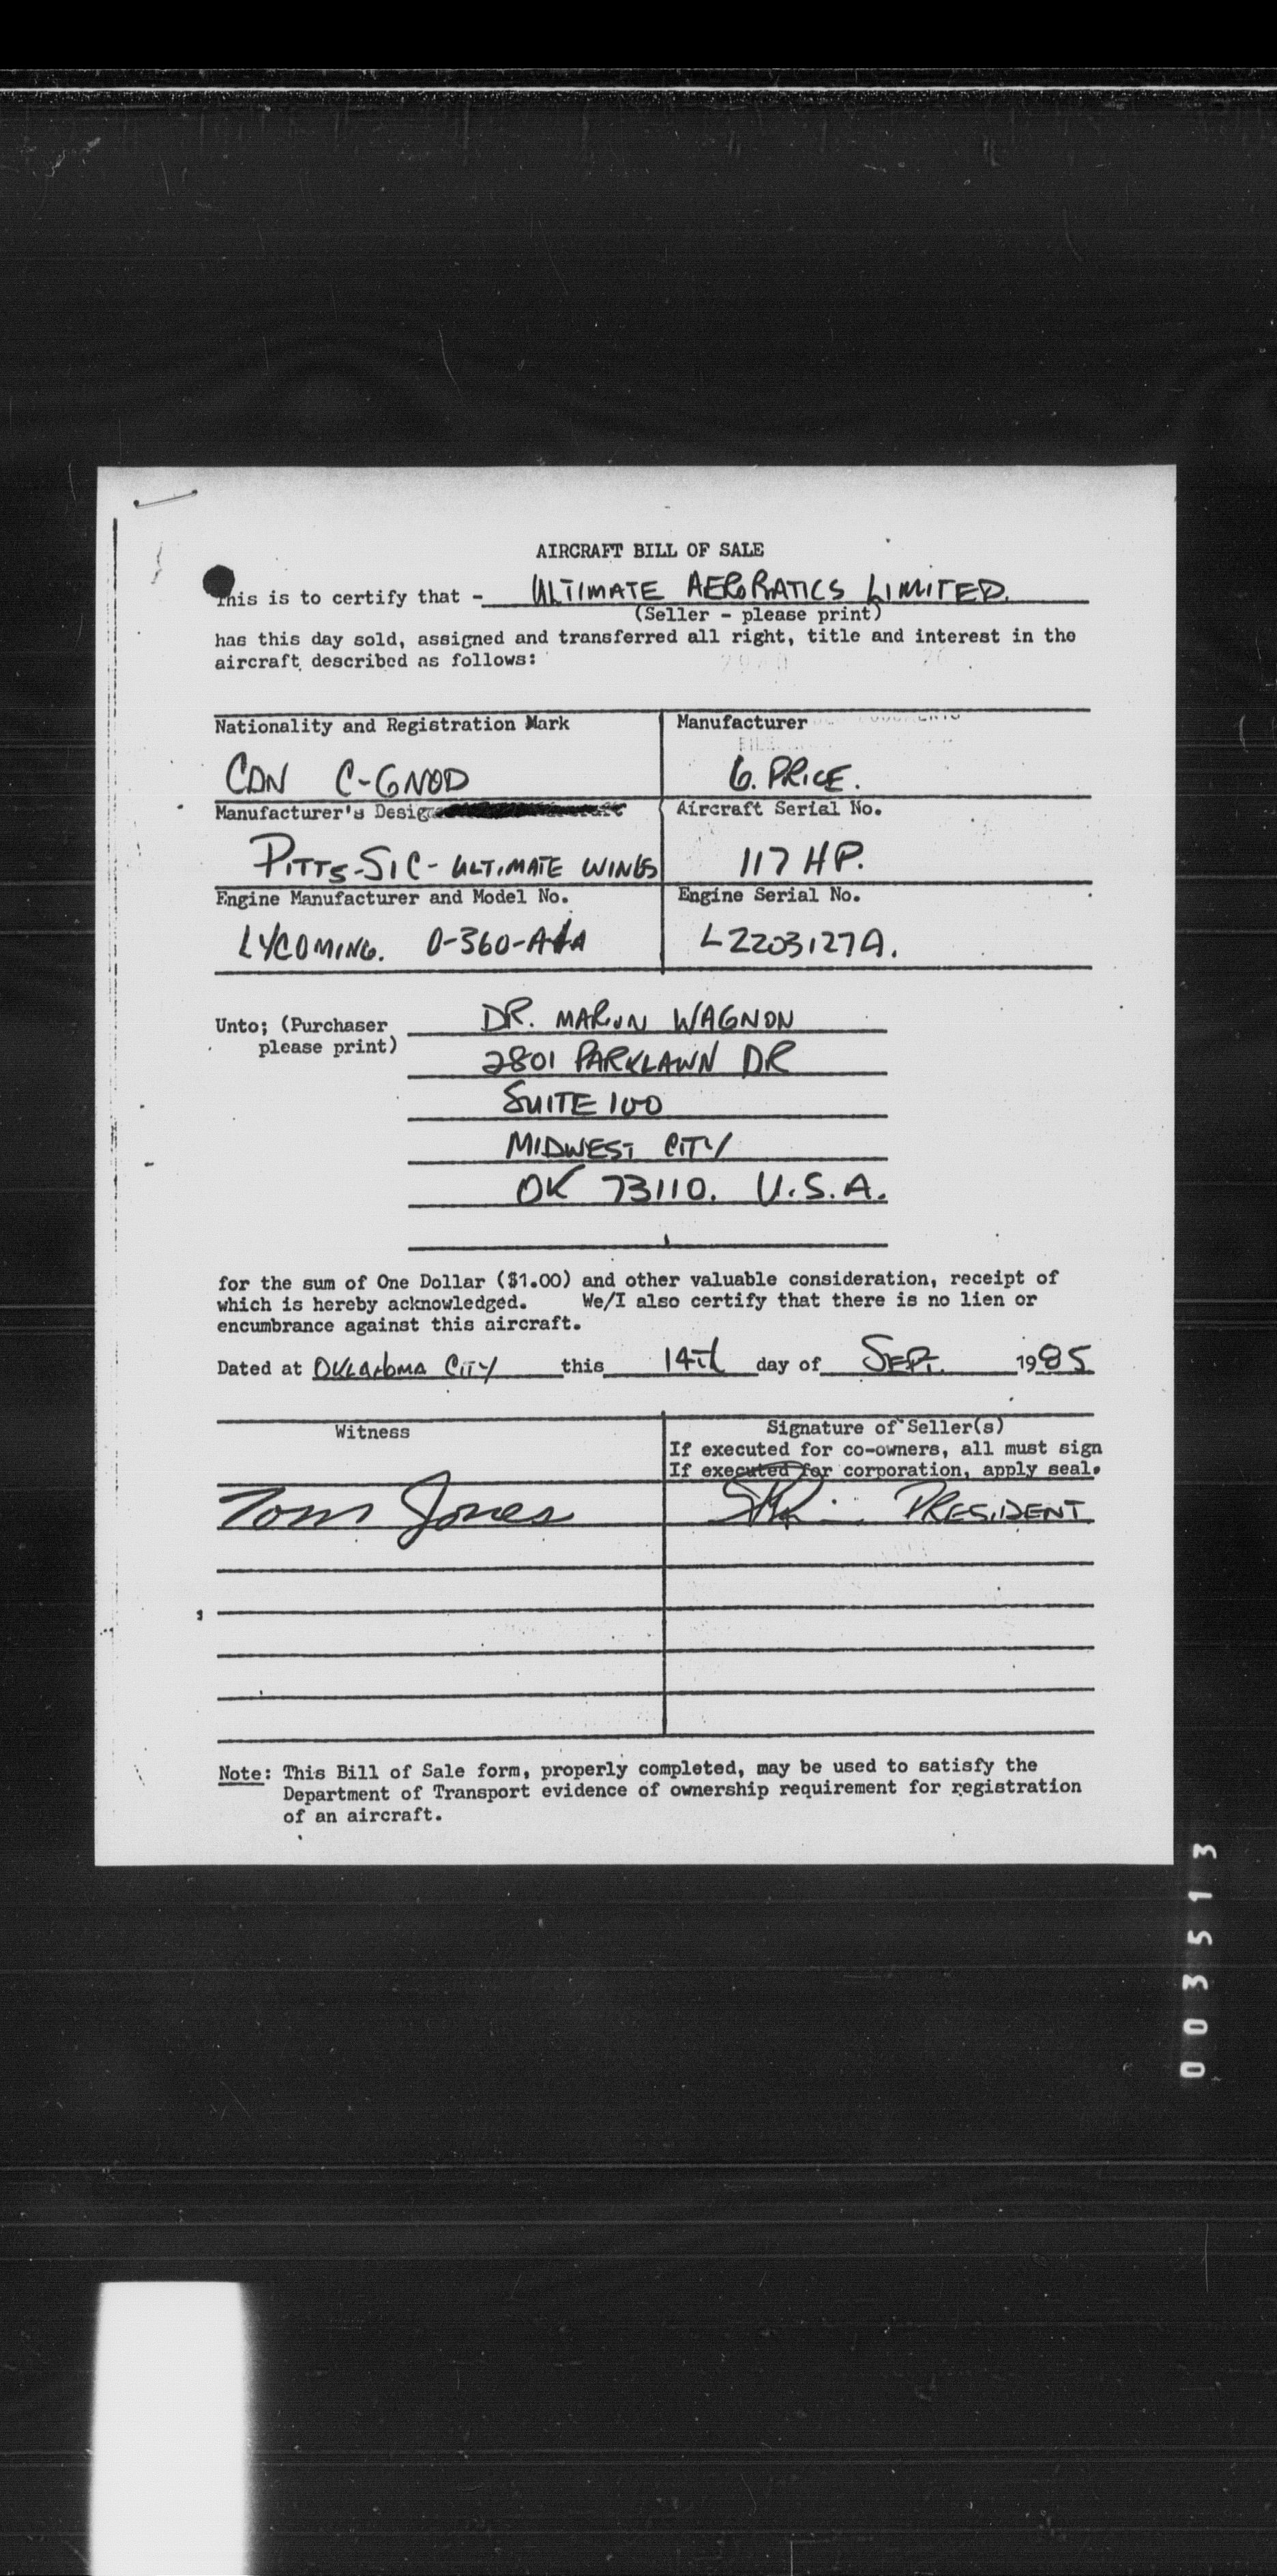 AIRCRAFT BILL OF SALE
This is to certify that - ULTIMATE AEROBATICS LIMITED.
(Seller - please print)
has this day sold, assigned and transferred all right, title and interest in the
aircraft described as follows:
Nationality and Registration Mark Manufacturer
CDN C-GNOD G. PRICE.
Manufacturer's Aircraft Serial No.
PITTS-S1C- ULTIMATE WINGS 117 HP.
Engine Manufacturer and Model No. Engine Serial No.
LYCOMING. O-360-A1A L2203127A.
Unto; (Purchaser DR. WAGNON
please print) 2801 PARKLAWN DR
SUITE 100
MIDWEST CITY
OK 73110. U.S.A.
for the sum of One Dollar ($1.00) and other valuable consideration, receipt of
which is hereby acknowledged. We/I also certify that there is no lien or
encumbrance against this aircraft.
Dated at OKLAHOMA CITY this 14TH day of SEPT. 1985
Witness Signature of Seller(s)
If executed for co-owners, all must sign
If executed for corporation, apply seal.
Tom Jones PRESIDENT
Note: This Bill of Sale form, properly completed, may be used to satisfy the
Department of Transport evidence of ownership requirement for registration
of an aircraft.
003513